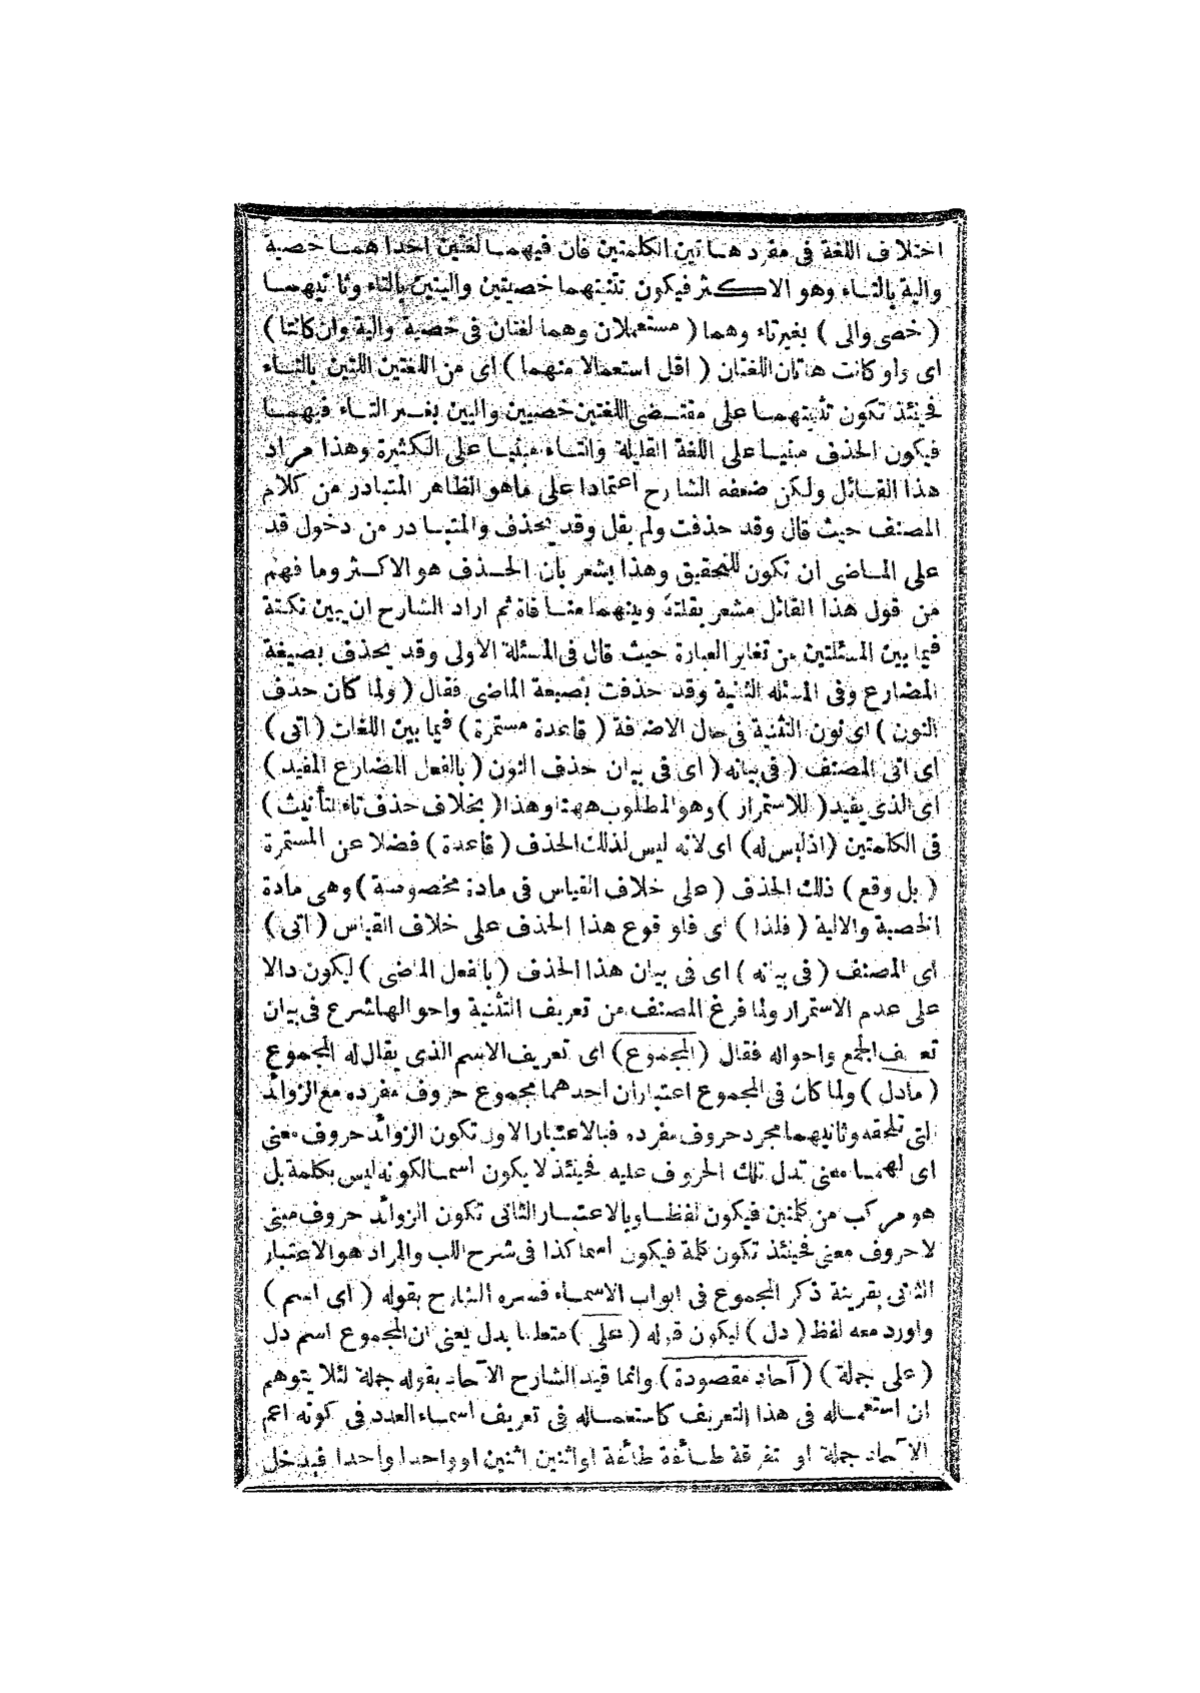 اختلاف اللغة فى مفرد هاتين الكلمتين فان فيهما لغتين احداهما خصية
والية بالتاء وهو الاكثر فيكون تثنيتهما خصيتين واليتين بالتاء وثانيهما
( خصى والى ) بغير تاء وهما ( مستعملان وهما لغتان فى خصية والية وان كانتا )
اى ولو كانت هاتان اللغتان ( اقل استعمالا منهما ) اى من اللغتين اللتين بالتاء
فحينئذ تكون تثنيتهما على مقتضى اللغتين خصيين واليين بغير التاء فيهما
فيكون الحذف مبنيا على اللغة القليلة والتاء مبنيا على الكثيرة وهذا مراد
هذا القائل ولكن ضعفه الشارح اعتمادا على ماهو الظاهر المتبادر من كلام
المصنف حيث قال وقد حذفت ولم يقل وقد يحذف والمتبادر من دخول قد
على الماضى ان تكون للتحقيق وهذا يشعر بان الحذف هو الاكثر وما فهم
من قول هذا القائل مشعر بقلته وبينهما منافاة ثم اراد الشارح ان يبين نكتة
فيما بين المسئلتين من تغاير العبارة حيث قال فى المسئلة الاولى وقد يحذف بصيغة
المضارع وفى المسئله الثانية وقد حذفت بصيغة الماضى فقال ( ولما كان حذف
النون ) اى نون التثنية فى حال الاضافة ( قاعدة مستمرة ) فيما بين اللغات ( اتى )
اى اتى المصنف ( فى بيانه ( اى فى بيان حذف النون ( بالفعل المضارع المفيد )
اى الذى يفيد ( للاستمرار ) وهو المطلوب ههنا وهذا ( بخلاف حذف تاء التأنيث )
فى الكلمتين ( اذ ليس له ) اى لانه ليس لذلك الحذف ( قاعدة ) فضلا عن المستمرة
( بل وقع ) ذلك الحذف ( على خلاف القياس فى مادة مخصوصة ) وهى مادة
الخصية والالية ( فلذا ) اى فلو قوع هذا الحذف على خلاف القياس ( اتى )
اى المصنف ( فى بيانه ) اى فى بيان هذا الحذف ( بالفعل الماضى ) ليكون دالا
على عدم الاستمرار ولما فرغ المصنف من تعريف التثنية واحوالها شرع فى بيان
تعريف الجمع واحواله فقال ( المجموع ) اى تعريف الاسم الذى يقال له المجموع
( مادل ) ولما كان فى المجموع اعتباران احدهما مجموع حروف مفرده مع الزوائد
التى تلحقه وثانيهما مجرد حروف مفرده فبالاعتبار الاول تكون الزوائد حروف معنى
اى لهما معنى تدل تلك الحروف عليه فحينئذ لا يكون اسما لكونه ليس بكلمة بل
هو مركب من كلمتين فيكون لفظا وبالاعتبار الثانى تكون الزوائد حروف مبنى
لاحروف معنى فحينئذ تكون كلمة فيكون اسما كذا فى شرح اللب والمراد هو الاعتبار
الثانى بقرينة ذكر المجموع فى ابواب الاسماء فسره الشارح بقوله ( اى اسم )
واورد معه لفظ ( دل ) ليكون قوله ( على ) متعلقا بدل يعنى ان المجموع اسم دل
( على جملة ) ( آحاد مقصودة ) وانما قيد الشارح الآحاد بقوله جملة لئلا يتوهم
ان استعماله فى هذا التعريف كاستعماله فى تعريف اسماء العدد فى كونه اعم
الآحاد جملة او تفرقة طائفة طائفة او اثنين اثنين او واحدا واحدا فيدخل